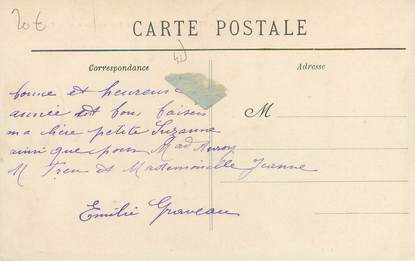 20€
42
CARTE POSTALE
Correspondance
Adresse
bonne et heureuse
année et bons baisers
ma chère petite Suzanne
M
ainsi que pour Mad
M et Mademoiselle Jeanne
Emilie Graveau